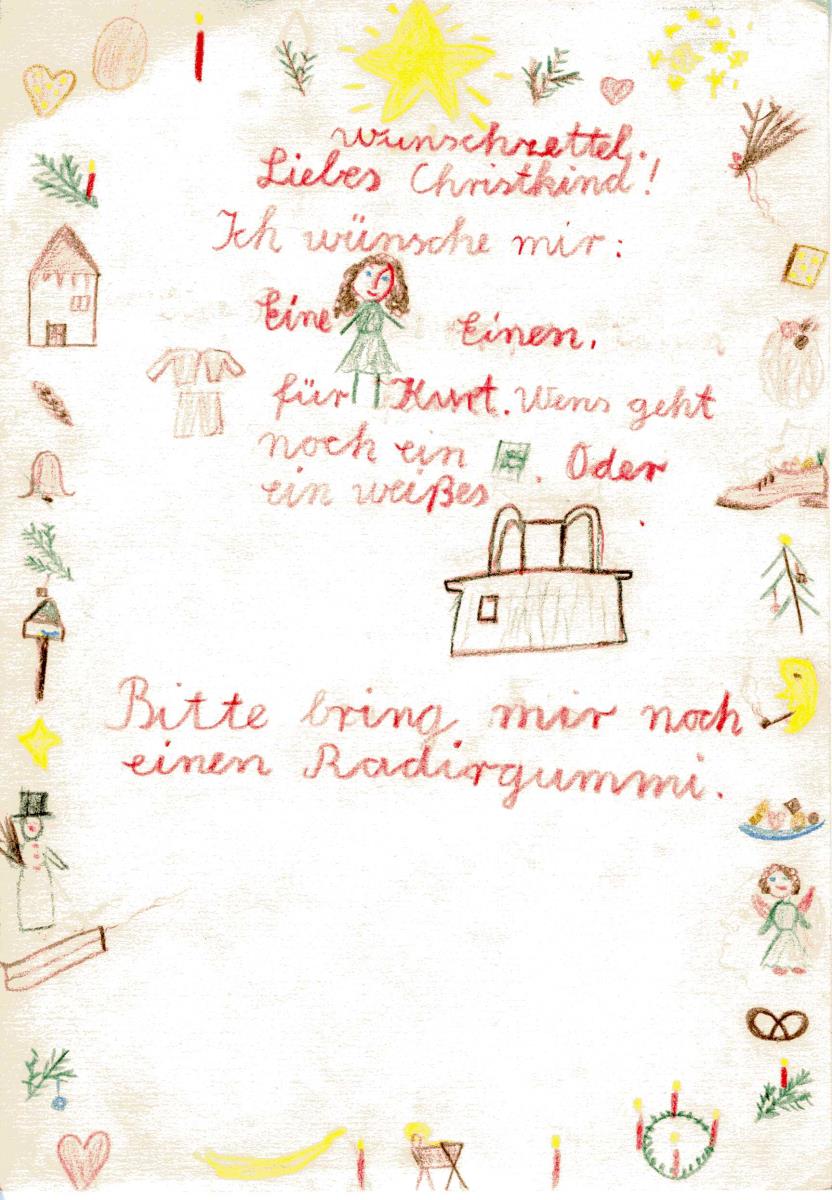 Wunschzettel.
Liebes Christkind!
Ich wünsche mir:
Eine Einen.
für Kurt. Wens geht
noch ein . Oder
ein weißes
Bitte bring mir noch
einen Radirgummi.